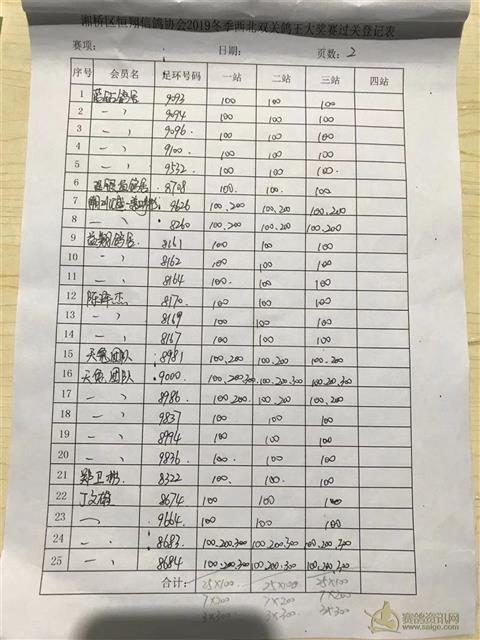 湘桥区恒翔信鸽协会2019冬季西北双关鸽王大奖赛过关登记表
赛项: 日期: 页数: 2
序号 会员名 足环号码 一站 二站 三站 四站
1 鸽居 9093 100 100 100
2 一 、 9094 100 100 100
3 一 、 9096 100 100 100
4 一 、 9100 100 100 100
5 一 、 9532 100 100 100
6 8708 100. 100 100
7 9626 100.200 100.200 100.200
8 一 、 8260 100.200 100.200 100.200
9 益翔鸽居. 8161 100 100 100
10 一 、 8162 100 100 100
11 一 、 8164 100. 100 100
12 陈泽杰 8170 100 100 100
13 一 、 8169 100 100 100
14 一 、 8167 100 100 100
15 天龛团队 8981 100.200 100.200 100.200
16 天龛.团队 .9000 100.200.300 100.200.300 100.200.300
17 一 、 8986 100.200 100.200 100.200
18 一 、 9837 100 100 100
19 一 、 8994 100 100 100
20 一 、 9836. 100 100 100
21 郑卫彬. 8322 100. 100 100
22 丁文雄 8674 100 100 100
23 一、 9664. 100 100 100
24 一 、 8683 100.200.300 100.200.300 100.200.300
25 一 、 8684 100.200.300 100.200.300 100.200.300
合计: 25×100 25×100 25×100
7×200 7×200 7×200
3×300 3×300 3×300
赛鸽资讯网
www.saige.com